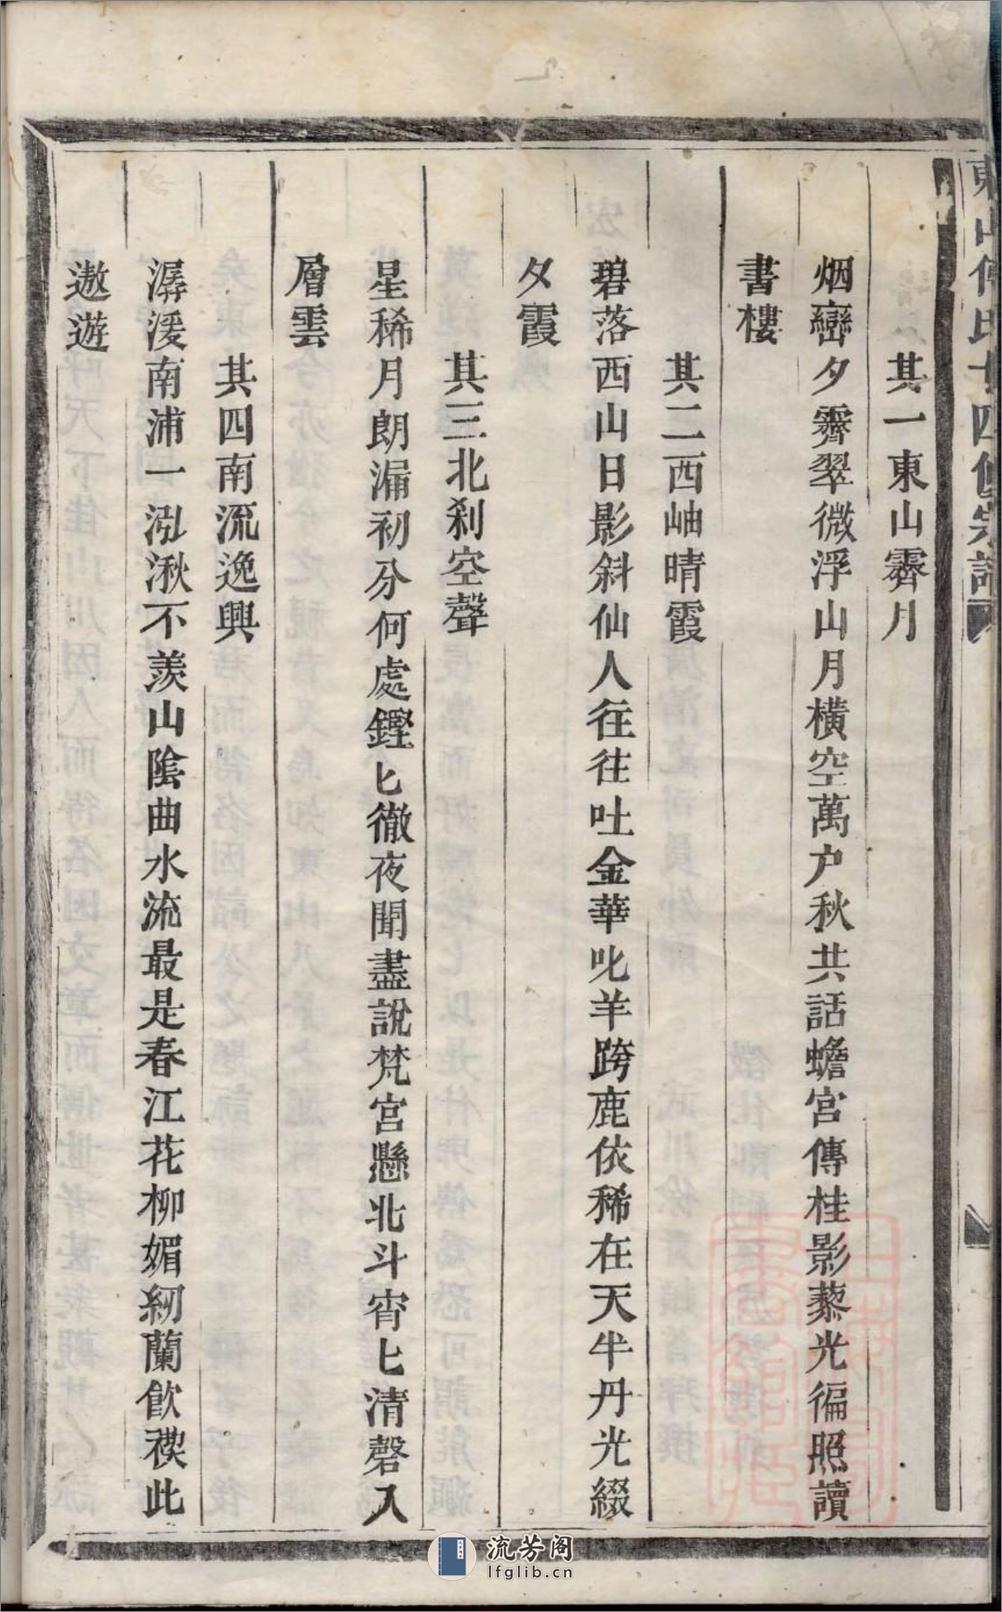 東山傅氏十四修宗譜
其一東山霽月
烟巒夕霽翠微浮山月橫空萬户秋共話蟾宮傳桂影藜光徧照讀
書樓
其二西岫晴霞
碧落西山日影斜仙人往往吐金華叱羊跨鹿依稀在天半丹光綴
夕霞
其三北刹空聲
星稀月朗漏初分何處鏗匕徹夜聞盡說梵宮懸北斗宵匕清磬入
層雲
其四南流逸興
潺湲南浦一泓湫不羨山陰曲水流最是春江花柳媚紉蘭飲禊此
遨遊
流芳阁
lfglib.cn